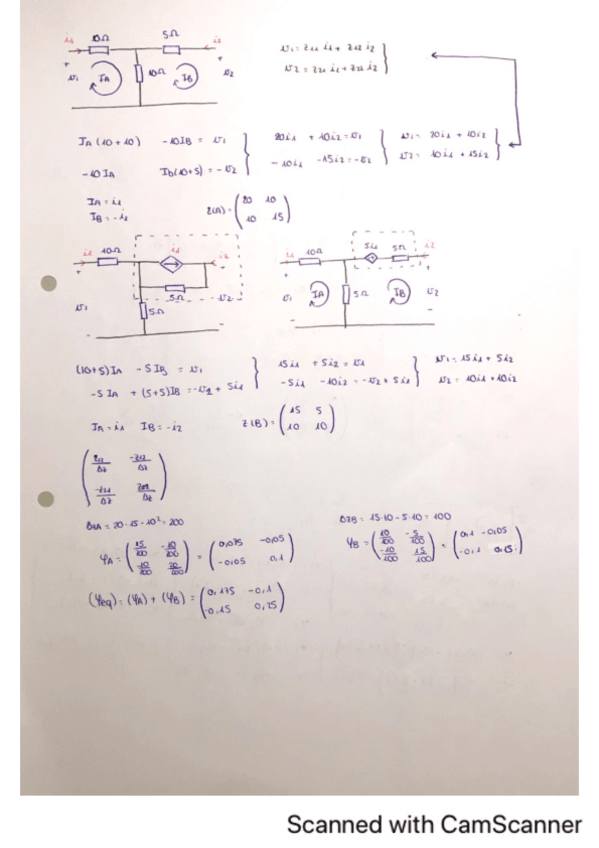 i1 10Ω 5Ω i2
+ +
v1 IA 10Ω IB v2
- -
v1 = z11 i1 + z12 i2
v2 = z21 i1 + z22 i2
IA (10+10) -10IB = v1
-10IA Ib(10+5) = -v2
20i1 + 10i2 = v1
-10i1 -15i2 = -v2
v1 = 20i1 + 10i2
v2 = 10i1 + 15i2
IA = i1
IB = -i2
Z(A) = (20 10
10 15)
i1 10Ω i1 i2
+ 5Ω +
v1 5Ω v2
- -
i1 10Ω 5i1 5Ω i2
+ +
v1 IA 5Ω IB v2
- -
(10+5)IA -5IB = v1
-5IA + (5+5)IB = -v2 + 5i1
15i1 + 5i2 = v1
-5i1 -10i2 = -v2 + 5i1
v1 = 15i1 + 5i2
v2 = 10i1 + 10i2
IA = i1 IB = -i2
Z(B) = (15 5
10 10)
(z22/Δz -z12/Δz
-z21/Δz z11/Δz)
ΔzA = 20·15 - 10² = 200
ΔzB = 15·10 - 5·10 = 100
YA = (15/200 -10/200
-10/200 20/200) = (0,075 -0,05
-0,05 0,1)
YB = (10/100 -5/100
-10/100 15/100) = (0,1 -0,05
-0,1 0,15)
(Yeq) = (YA) + (YB) = (0,175 -0,1
-0,15 0,25)
Scanned with CamScanner